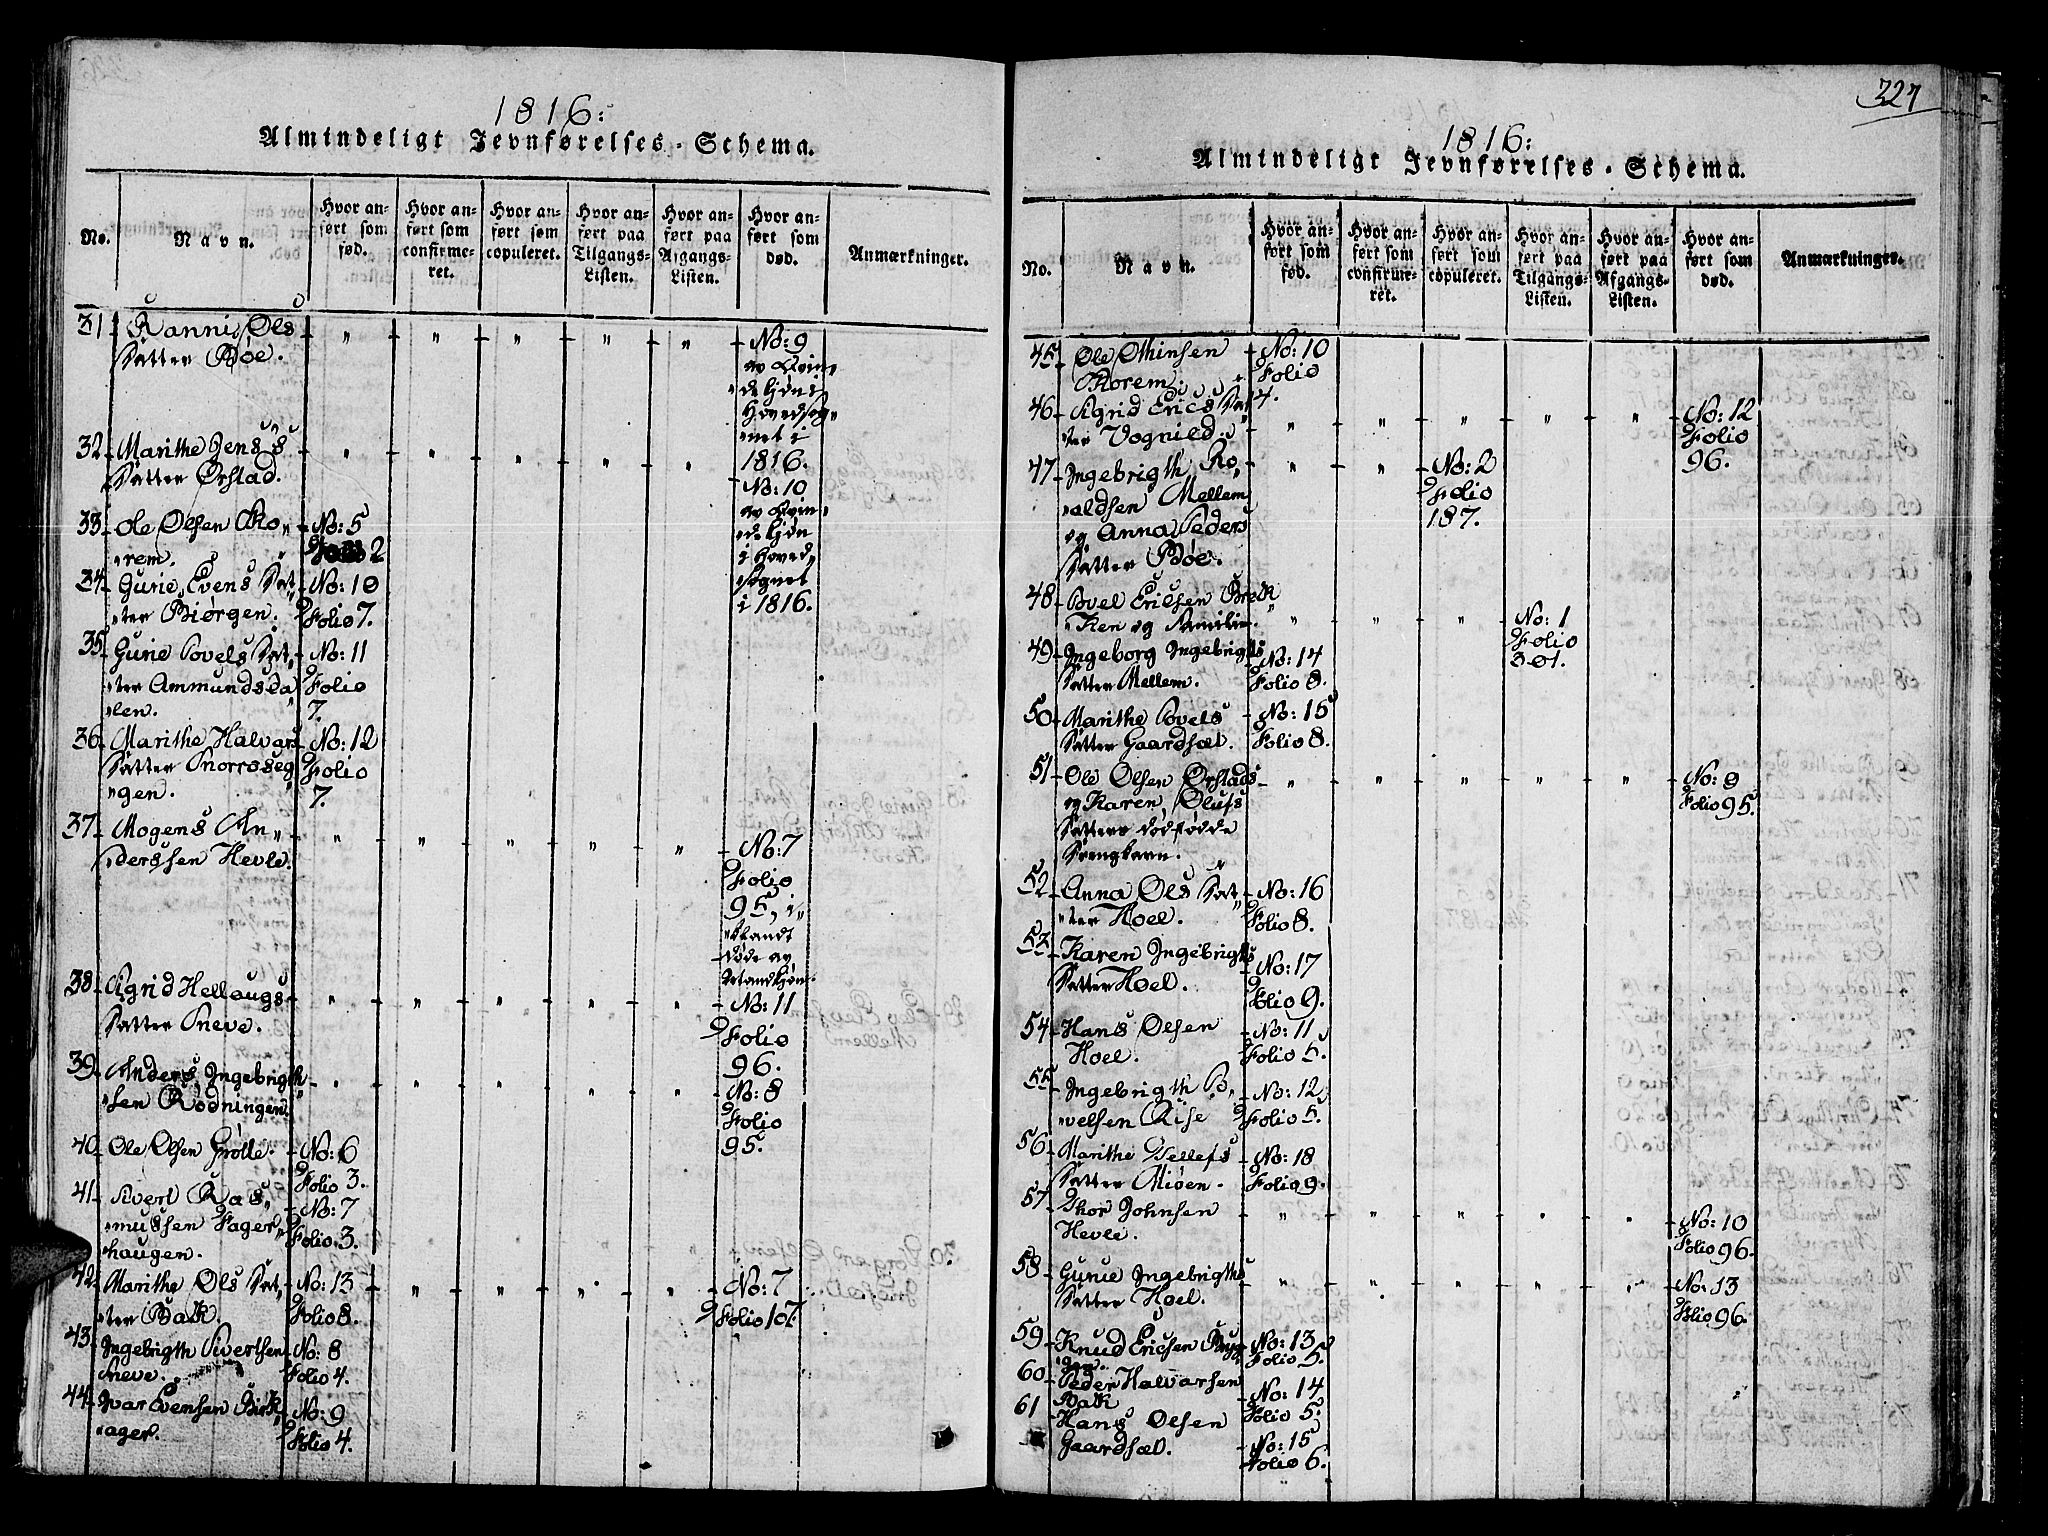 1816:
Almindeligt Jevnførelses-Schema.
No.
Navn.
Hvor an-
ført som
fød.
Hvor an-
ført som
confirme-
ret.
Hvor an-
ført som
copuleret.
Hvor an-
ført paa
Tilgangs-
Listen.
Hvor an-
ført paa
Afgangs-
Listen.
Hvor an-
ført som
død.
Anmærkninger.
31 Ranni Ols
Datter Bøe.
No: 9
av Qvin-
dekjøns
Hovedsog-
net i
1816.
32 Marithe Jens's
Datter Ørstad.
No: 10
av Qvin-
dekjøn
i Hoved
Sognet
i 1816.
33 Ole Olsen Sko-
rem. No: 5
Folio 2
34 Gurie Evens Dat-
ter Biørgen. No: 10
Folio 7.
35 Gurie Povels Dat-
ter Ammundsda
len. No: 11
Folio
7.
36 Marithe Halvars
Datter Snorroseg
gen. No: 12
Folio
7.
37 Mogens An-
derssen Hevle. No: 7
Folio
95, i-
blandt
døde av
Mandkjøn.
38 Sigrid Hellaugs
Datter Sneve. No: 11
Folio
96.
39 Anders Ingebrigth
sen Rødningen. No: 8
Folio
95.
40 Ole Olsen Grøtte. No: 6
Folio 3.
41 Sivert Ras-
mussen Fager-
haugen. No: 7
Folio 3.
42 Marithe Ols Dat-
ter Bak. No: 13
Folio 8.
No: 7
Folio 107.
43 Ingebrigth Sivertsen
Sneve. No: 8
Folio 4.
44 Ivar Evensen Birk-
ager. No: 9
Folio 4.
327
1816:
Almindeligt Jevnførelses-Schema.
No.
Navn.
Hvor an-
ført som
fød.
Hvor an-
ført som
confirme-
ret.
Hvor an-
ført som
copuleret.
Hvor an-
ført paa
Tilgangs-
Listen.
Hvor an-
ført paa
Afgangs-
Listen.
Hvor an-
ført som
død.
Anmærkninger.
45 Ole Othinsen
Skorem. No: 10
Folio
4.
46 Sigrid Erics Dat-
ter Vognild. No: 12
Folio
96.
47 Ingebrigth Ro-
aldsen Mellem
og Anna Peders
Datter Bøe. No: 2
Folio
187.
48 Povel Ericsen Brek
Ken og Familie. No: 1
Folio
301.
49 Ingeborg Ingebrigts
Datter Mellem. No: 14
Folio 8.
50 Marithe Povels
Datter Gaardsæt. No: 15
Folio 8.
51 Ole Olsen Ørstads
og Karen Olufs
Datters dødfødde
Drengbarn. No: 9
Folio 95.
52 Anna Ols Dat-
ter Hoel. No: 16
Folio 8.
53 Karen Ingebrigts
Datter Hoel. No: 17
Folio 9.
54 Hans Olsen
Hoel. No: 11
Folio 5.
55 Ingebrigth Po-
velsen Rise No: 12
Folio 5.
56 Marithe Dellefs
Datter Miøen. No: 18
Folio 9.
57 Thor Johnsen
Hevle. No: 10
Folio 96.
58 Gurie Ingebrigths
Datter Hoel. No: 13
Folio 96.
59 Knud Ericsen Rug
gen. No: 13
Folio 5.
60 Peder Halvarsen
Bak No: 14
Folio 5.
61 Hans Olsen
Gaardsæt. No: 15
Folio 6.